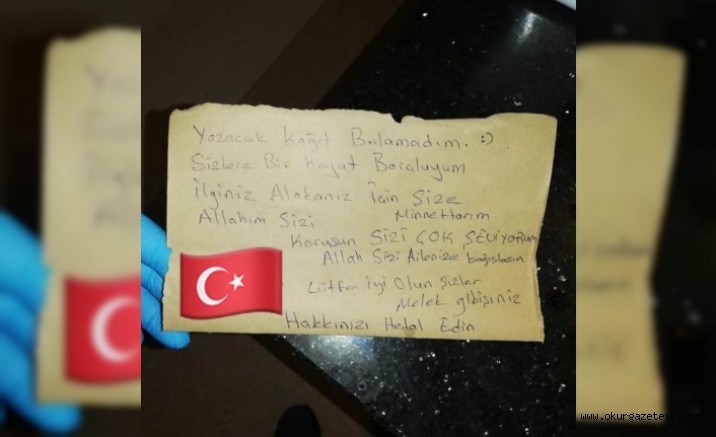 Yazacak Kağıt Bulamadım. :)
Sizlere Bir hayat Borçluyum
İlginiz Alakanız İçin Size
Allahım Sizi Minnettarım
Korusun Sizi ÇOK SEViYORUM
Allah Sizi Ailenize bağışlasın
Lütfen iyi Olun Sizler
Melek gibisiniz
Hakkınızı Helal Edin
www.okurgazetes